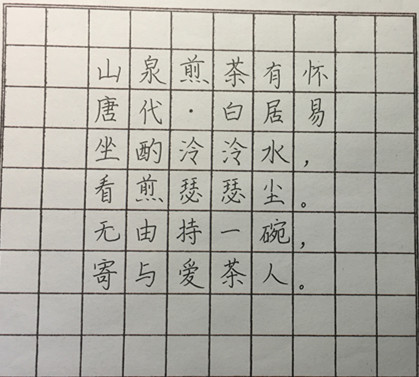 山泉煎茶有怀
唐代·白居易
坐酌泠泠水，
看煎瑟瑟尘。
无由持一碗，
寄与爱茶人。